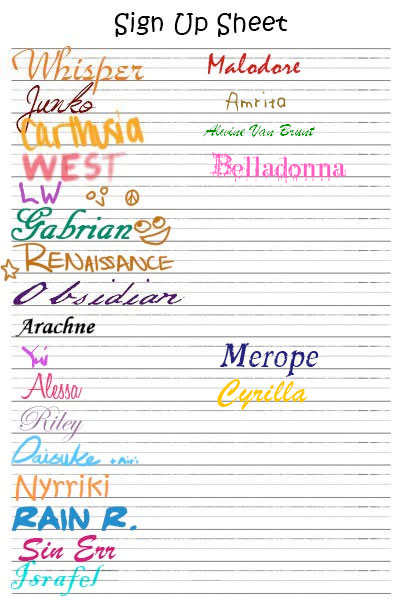 Sign Up Sheet
Whisper
Junko
Carthusia
WEST
LW
Gabrian
RENAISSANCE
Obsidian
Arachne
Yui
Alessa
Riley
Daisuke + Miri
Nyrriki
RAIN R.
Sin Err
Israfel
Malodore
Amrita
Alwine Van Brunt
Belladonna
Merope
Cyrilla